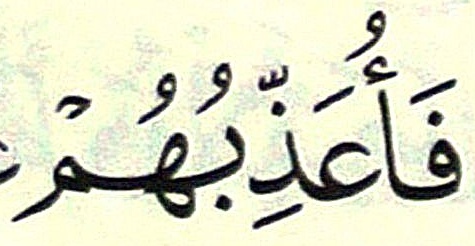 فَأُعَذِّبُهُمْ